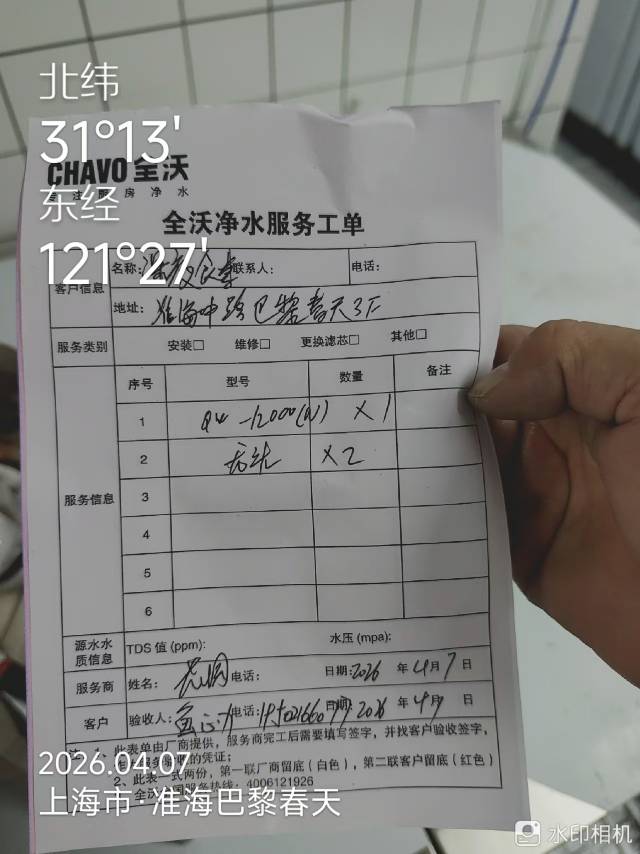 北纬
31°13'
东经
121°27'
CHAVO 全沃
房净水
全沃净水服务工单
客户信息 名称: 联系人: 电话:
地址: 淮海中路巴黎春天3F
服务类别 安装□ 维修□ 更换滤芯□ 其他□
服务信息 序号 型号 数量 备注
1 QW-12000(W) ×1
2 ×2
3
4
5
6
源水水质信息 TDS 值 (ppm): 水压 (mpa):
服务商 姓名: 电话: 日期: 2026 年 4 月 7 日
客户 验收人: 电话: 日期: 2026 年 4 月 7 日
此表单由厂商提供，服务商完工后需要填写签字，并找客户验收签字，
服务验收的凭证；
2、此表一式两份，第一联厂商留底（白色），第二联客户留底（红色）
全沃 服务热线：4006121926
2026.04.07
上海市·淮海巴黎春天
水印相机